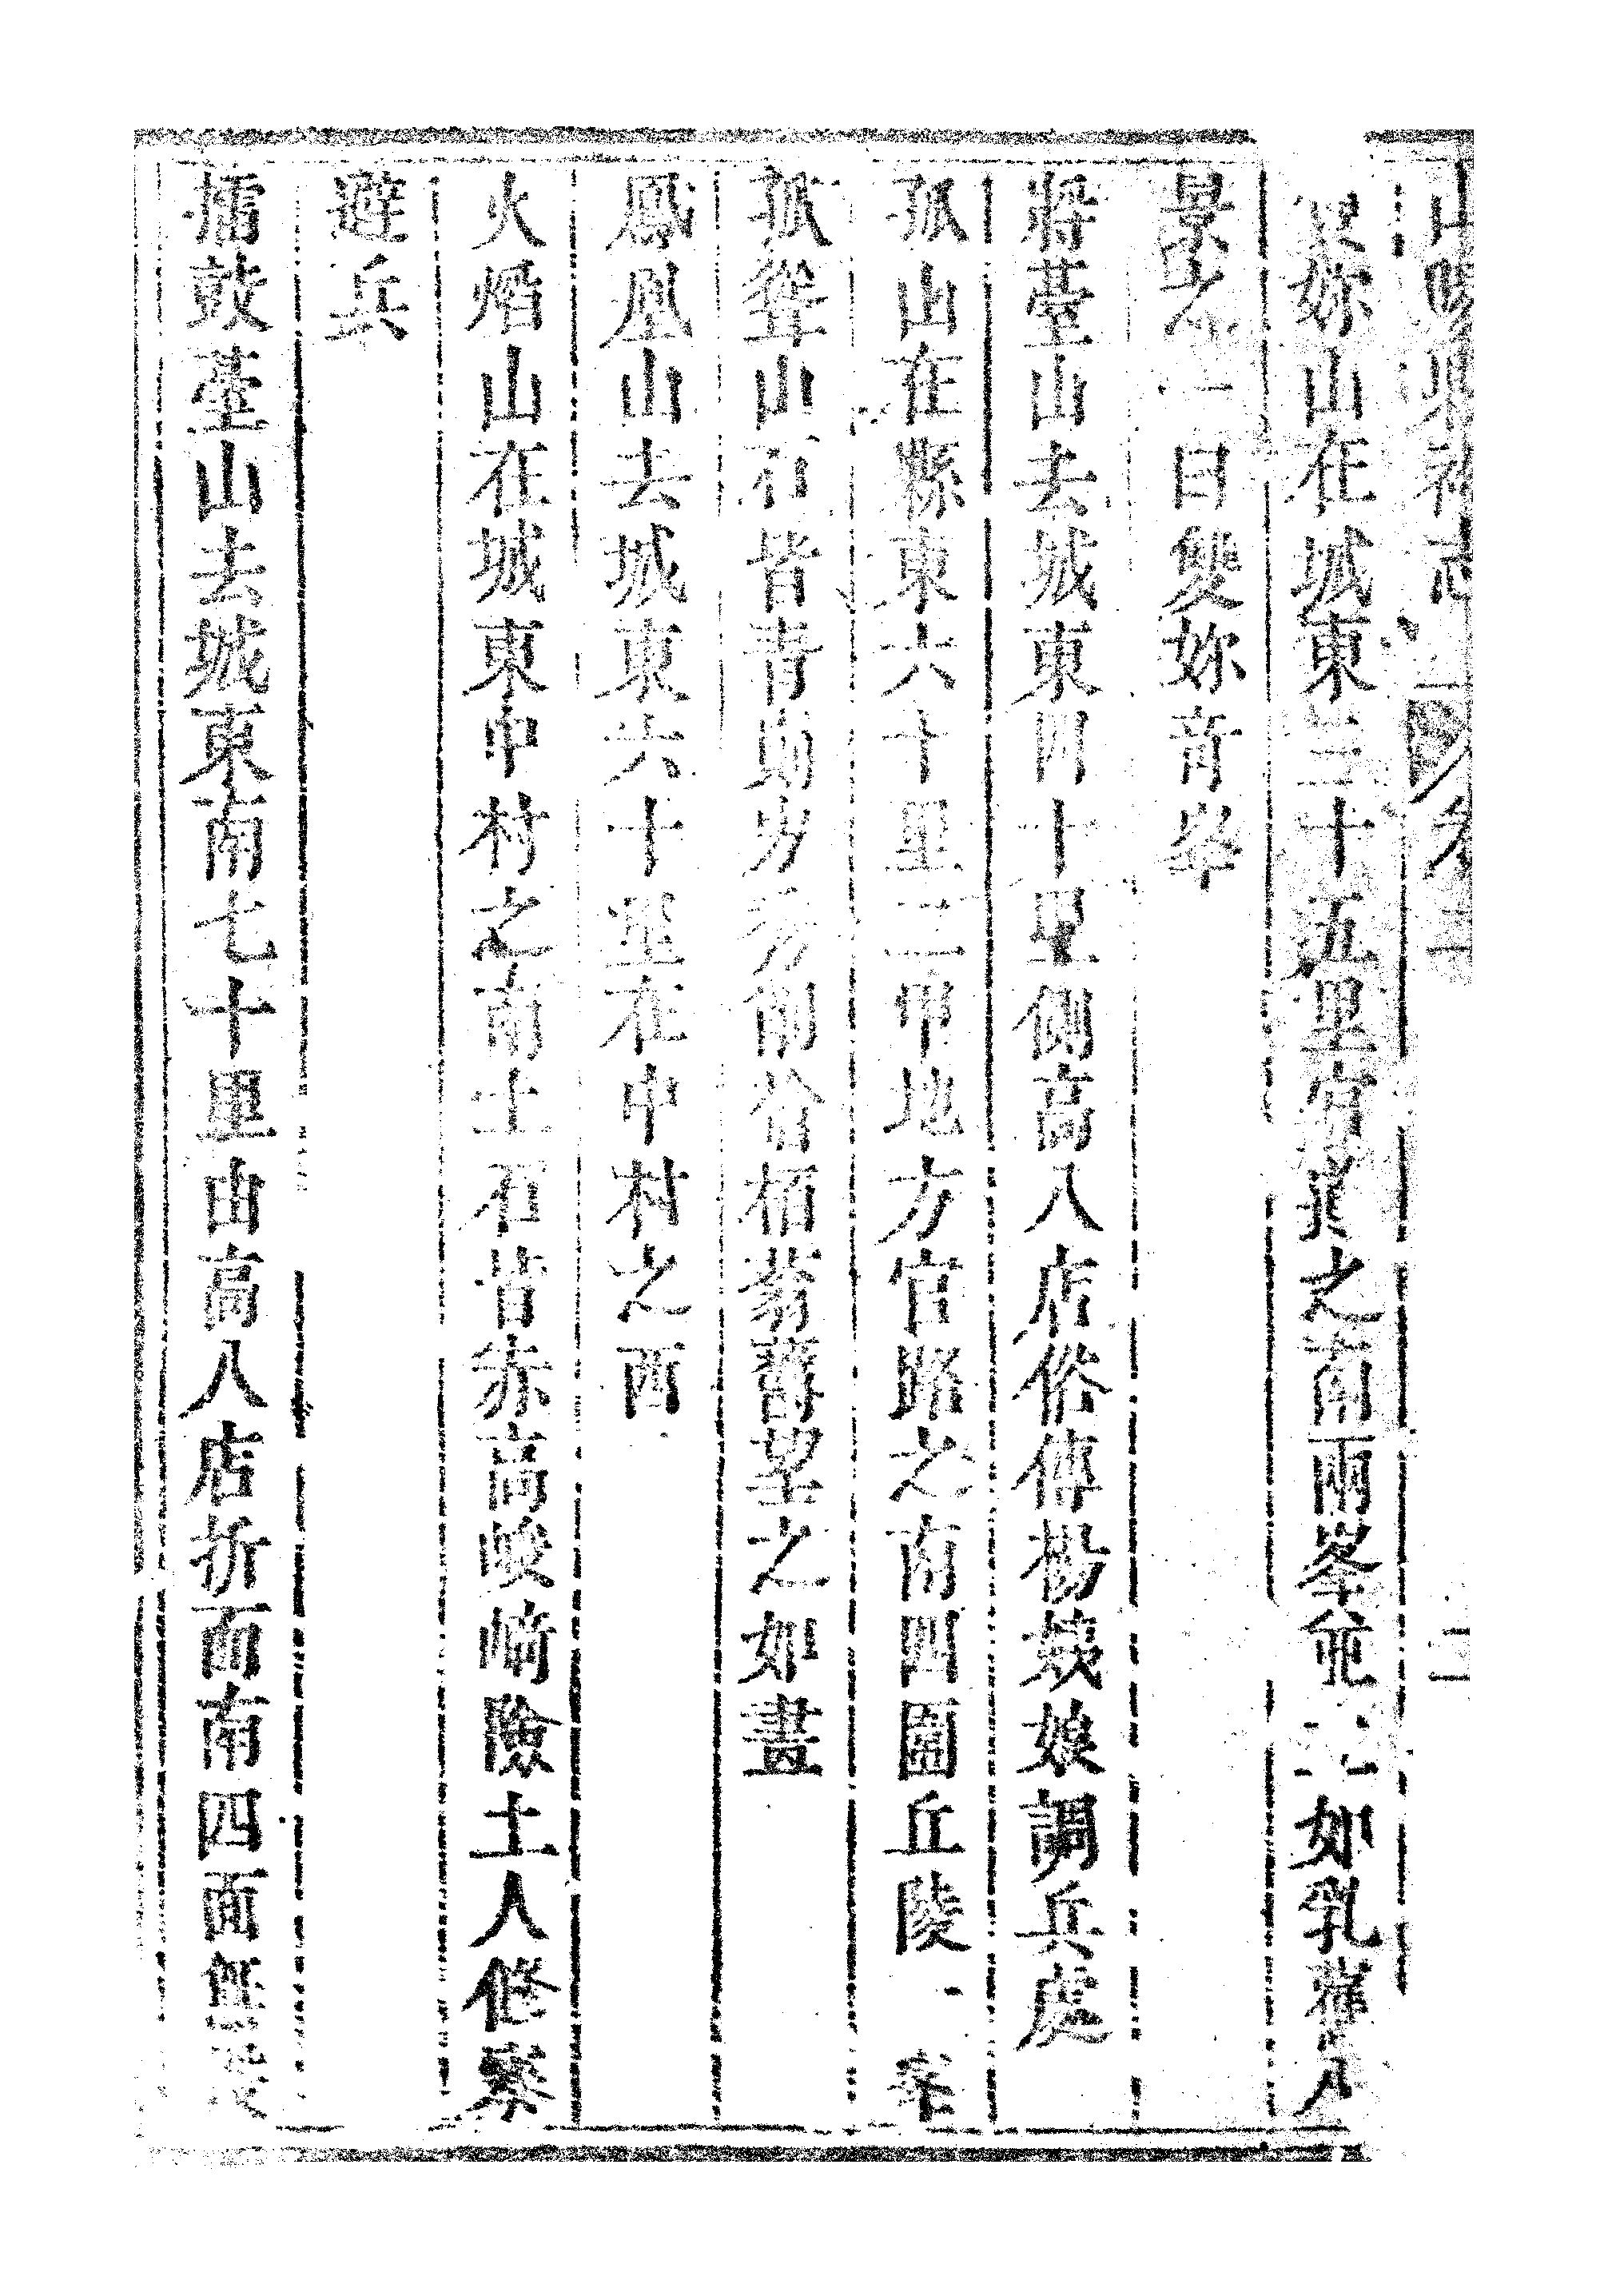 山陽縣初志 卷之二
妳山在城東三十五里官之南兩峯並如乳漳人
景之一曰雙妳奇峯
將臺山去城東四十里側高八店俗傳楊姨娘調兵處
孤山在縣東六十里二甲地方官路之南四圍丘陵一峯
孤聳山石皆青剛方秀削檜栢蓊蔚望之如畫
鳳凰山去城東六十里在中村之西
火焰山在城東中村之南土石皆赤高峻崎險土人修寨
避兵
擂鼓臺山去城東南七十里由高八店折而南四面無